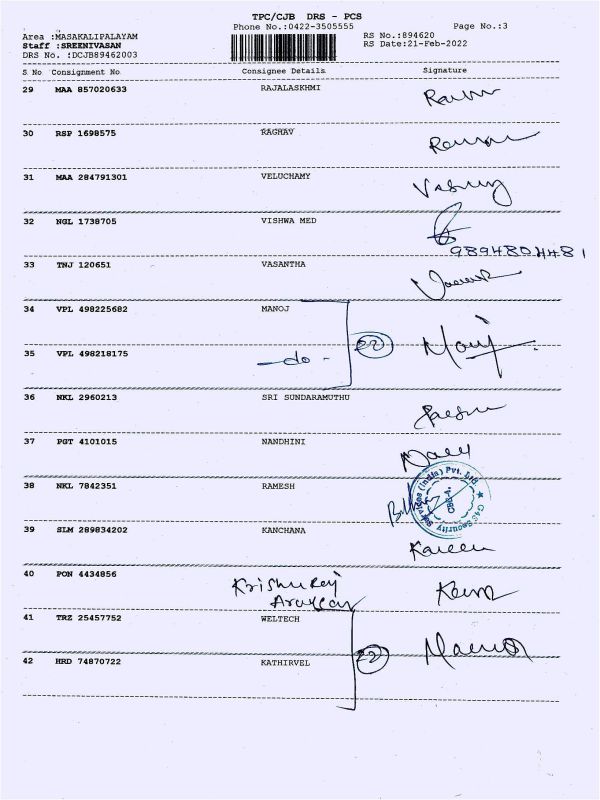 TPC/CJB DRS - PCS
Phone No.:0422-3505555 Page No.:3
Area :MASAKALIPALAYAM RS No.:894620
Staff :SREENIVASAN RS Date:21-Feb-2022
DRS No. :DCJB89462003
S No Consignment No Consignee Details Signature
29 MAA 857020633 RAJALASKHMI
30 RSP 1698575 RAGHAV
31 MAA 284791301 VELUCHAMY
32 NGL 1738705 VISHWA MED
9894804481
33 TNJ 120651 VASANTHA
34 VPL 498225682 MANOJ
22
35 VPL 498218175 - do -
36 NKL 2960213 SRI SUNDARAMUTHU
37 PGT 4101015 NANDHINI
38 NKL 7842351 RAMESH
G4S Security Services (India) Pvt. Ltd
39 SLM 289834202 KANCHANA
40 PON 4434856
41 TRZ 25457752 WELTECH
22
42 HRD 74870722 KATHIRVEL